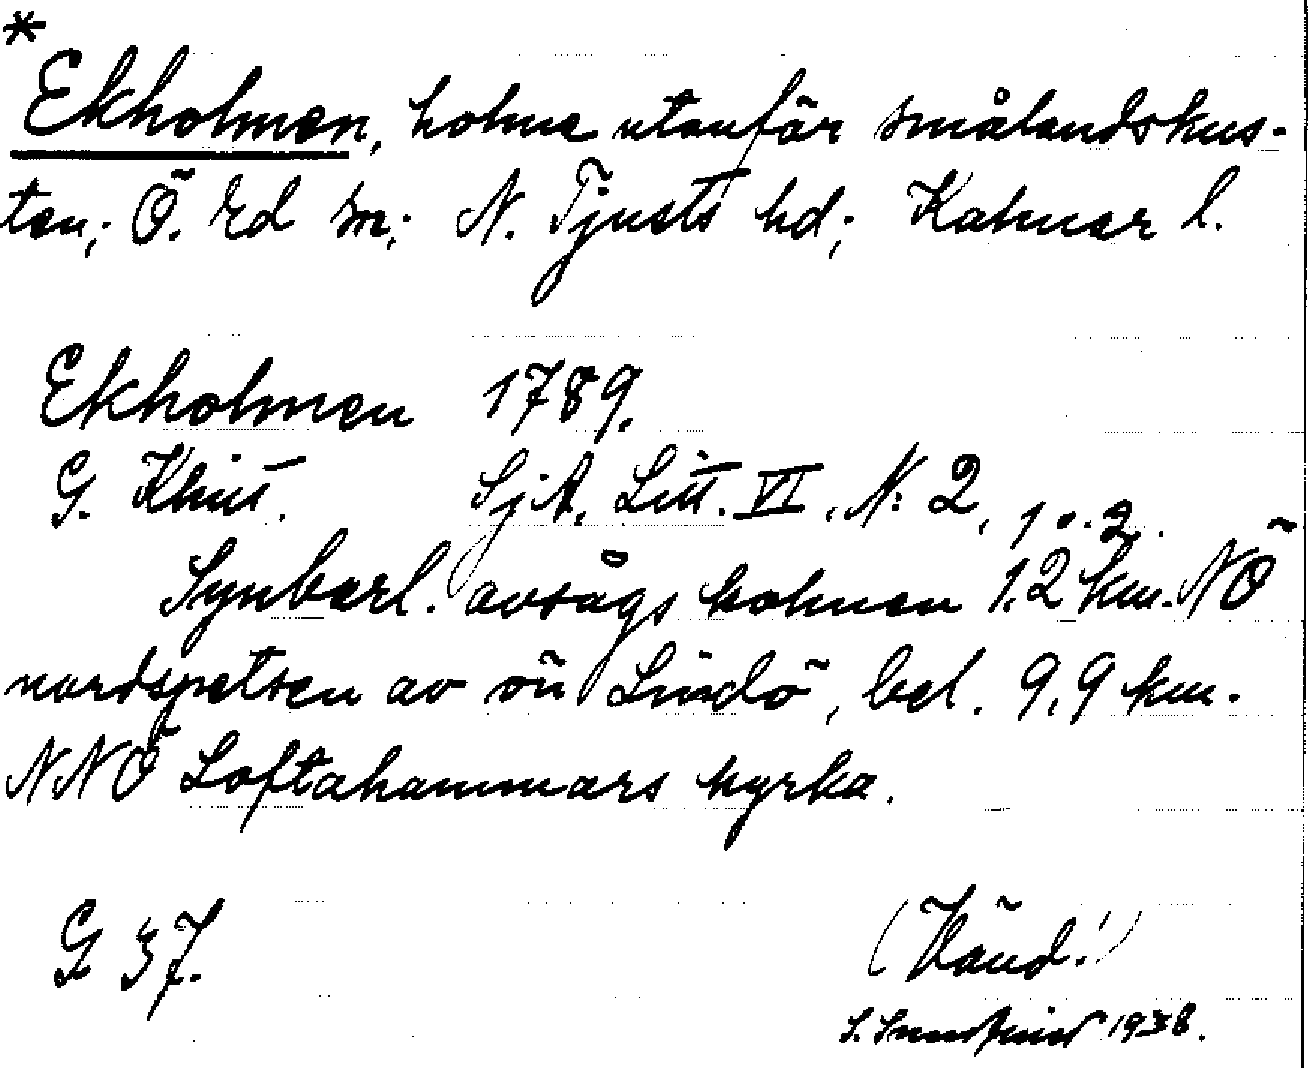 *
Ekholmen, holme utanför smålandskus-
ten; Ö. Ed sn; N. Tjusts hd; Kalmar l.
Ekholmen 1789.
G. Klint. SjA, Litt. VI, N: 2, 1 o. 2.
Synbarl. avsågs holmen 1.2 km. NÖ
nordspetsen av ön Lindö, bel. 9,9 km.
NNÖ Loftahammars kyrka.
G 37. (Vänd!)
S. 1938.